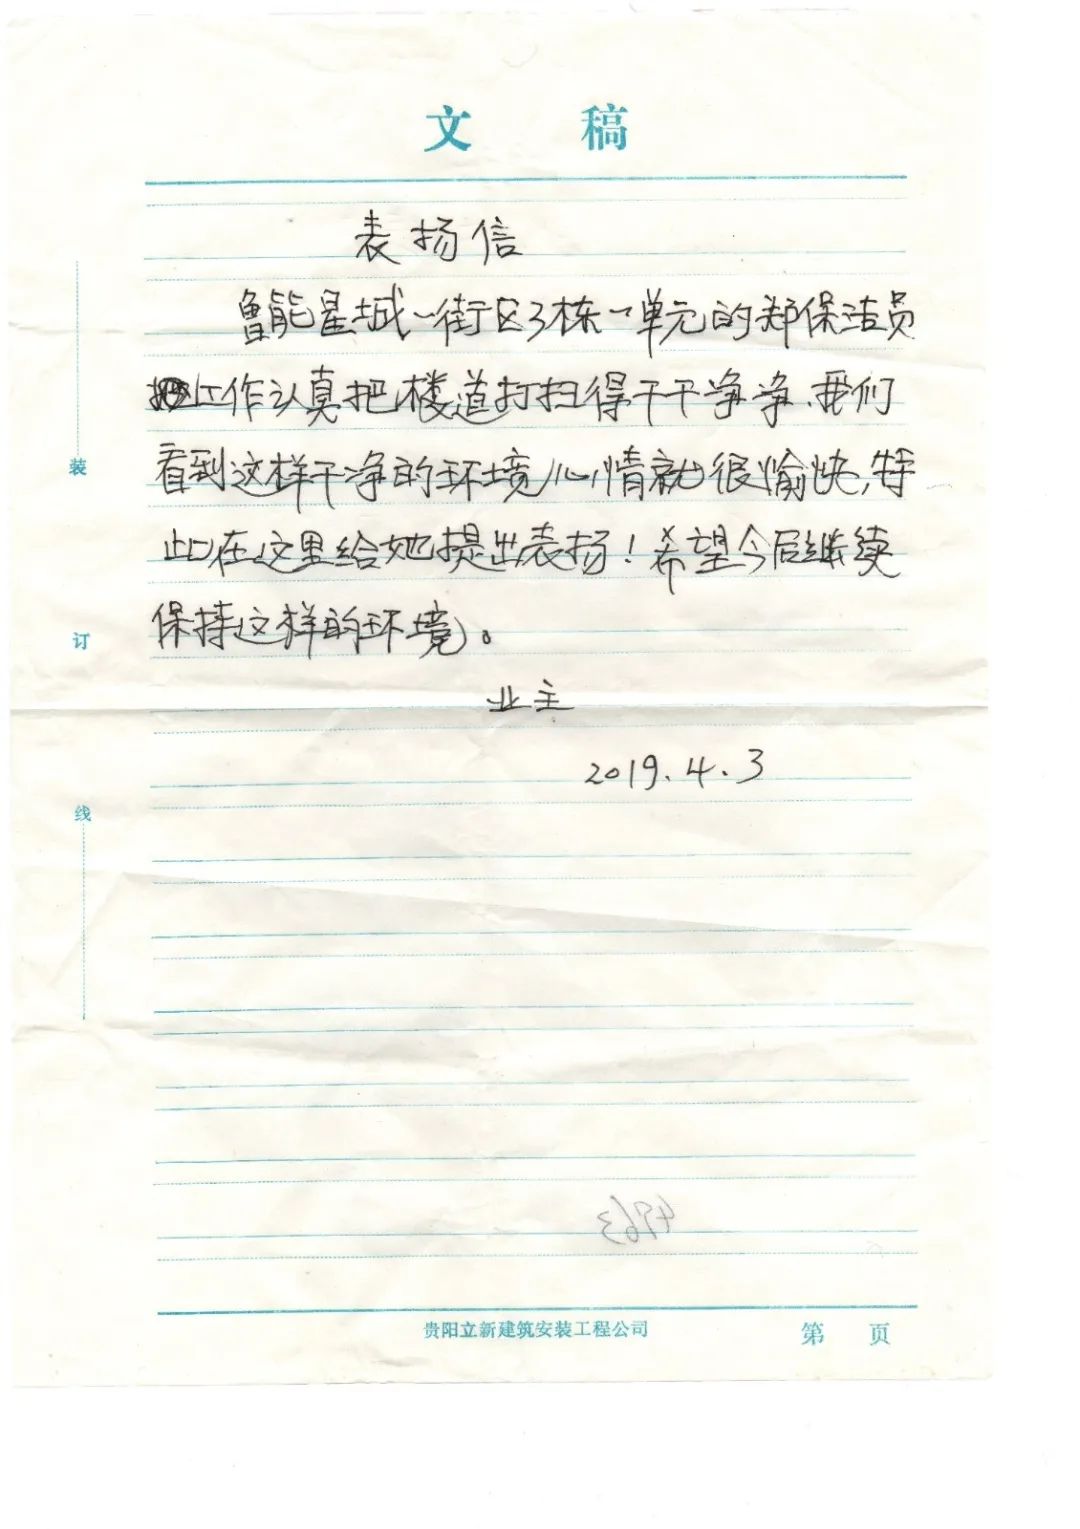 文 稿
表扬信
鲁能星城一街区3栋一单元的郑保洁员
工作认真把楼道打扫得干干净净、我们
看到这样干净的环境心情就很愉快,特
此在这里给她提出表扬!希望今后继续
保持这样的环境。
业主
2019.4.3
装
订
线
4963
贵阳立新建筑安装工程公司
第 页